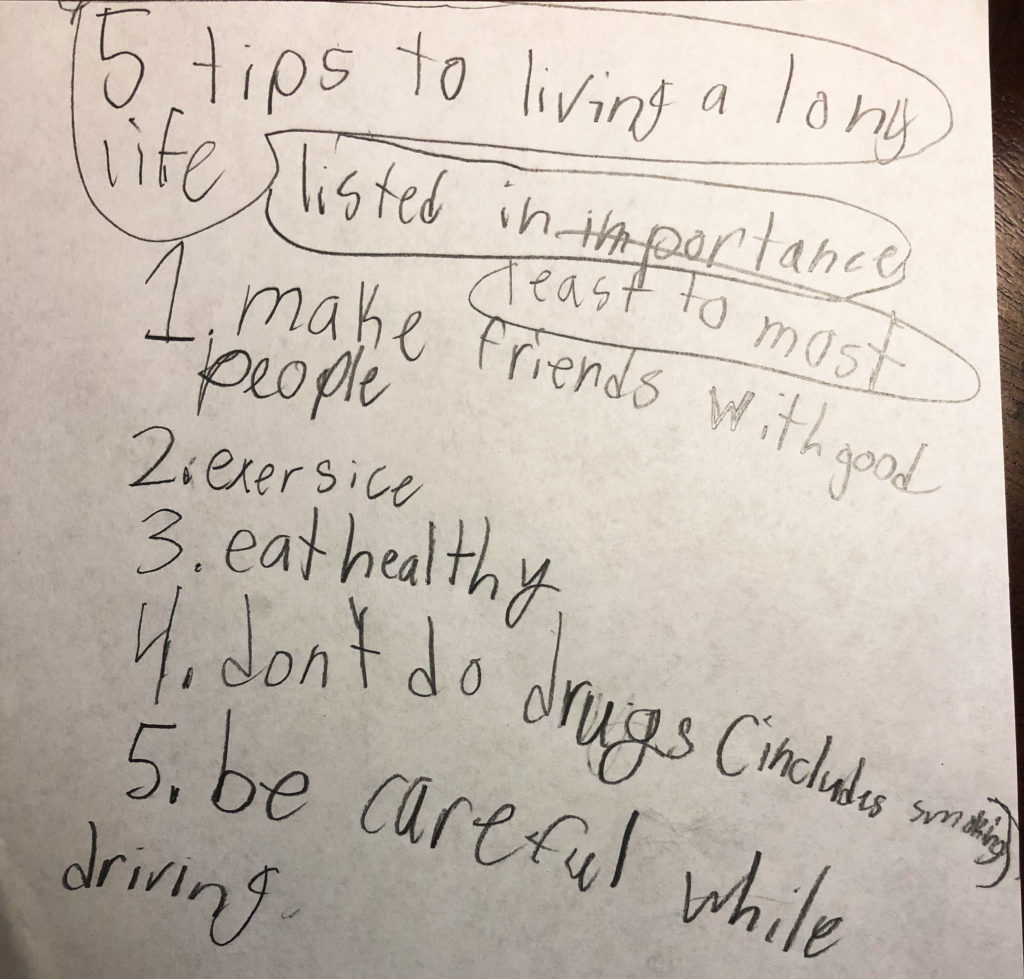 5 tips to living a long
life
listed in importance
least to most
1. make friends with good
people
2. exersice
3. eat healthy
4. don't do drugs (includes smoking)
5. be careful while
driving.